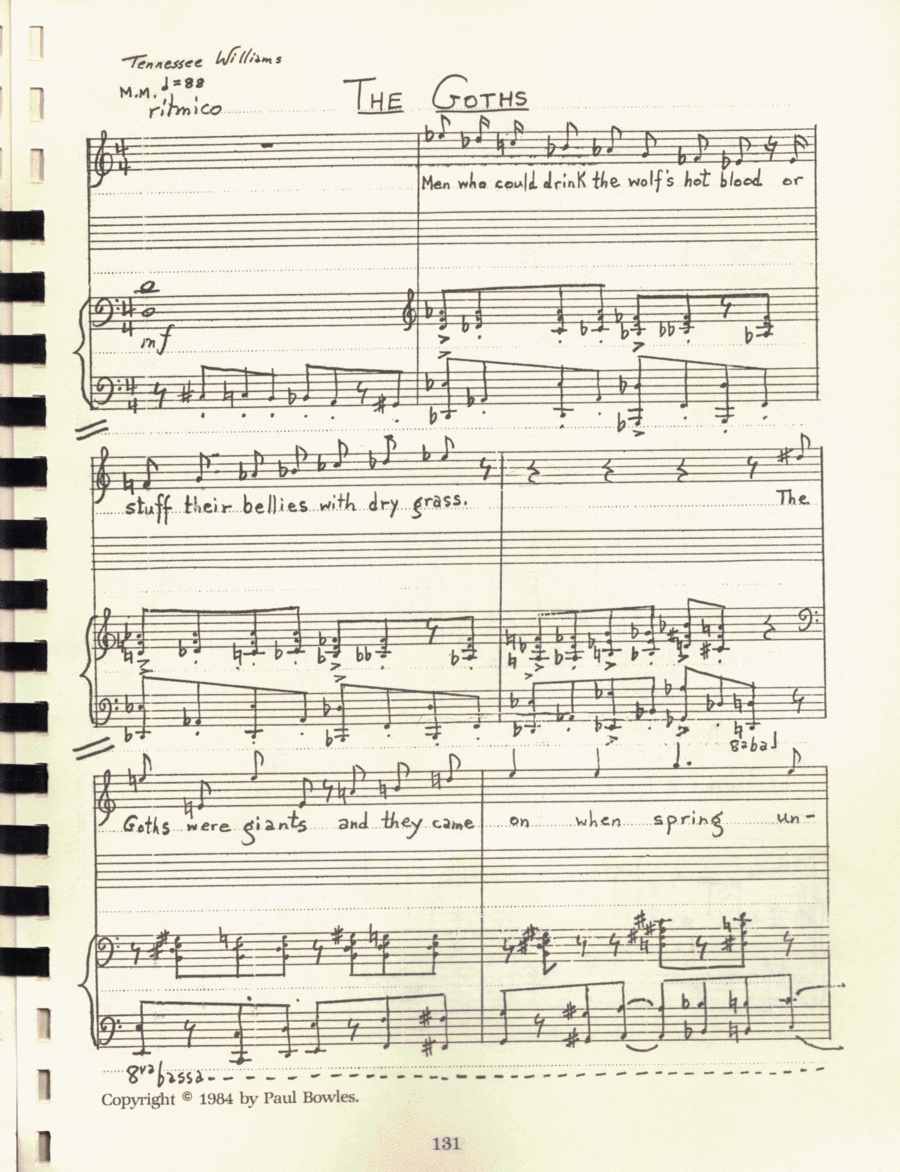 Tennessee Williams
M.M. ♩=88
ritmico
THE GOTHS
Men who could drink the wolf's hot blood or
mf
stuff their bellies with dry grass. The
8a ba
Goths were giants and they came on when spring un-
8va bassa
Copyright © 1984 by Paul Bowles.
131